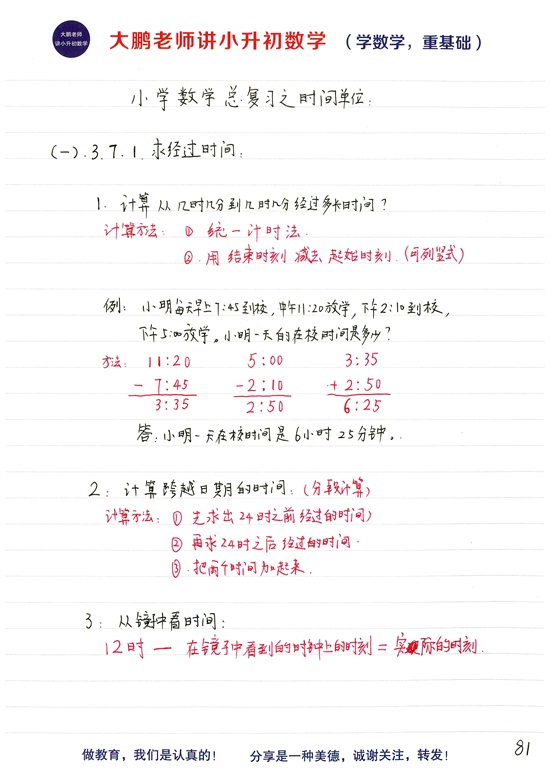 大鹏老师
讲小升初数学
大鹏老师讲小升初数学 （学数学，重基础）
小学数学总复习之时间单位：
(一).3.7.1.求经过时间：
1. 计算从几时几分到几时几分经过多长时间？
计算方法：① 统一计时法.
②.用结束时刻减去起始时刻.(可列竖式)
例：小明每天早上7:45到校，中午11:20放学，下午2:10到校，
下午5:00放学。小明一天的在校时间是多少？
方法：11:20 5:00 3:35
- 7:45 -2:10 + 2:50
3:35 2:50 6:25
答：小明一天在校时间是6小时25分钟。
2：计算跨越日期的时间：(分段计算)
计算方法：① 先求出24时之前经过的时间)
② 再求24时之后经过的时间.
③.把两个时间加起来.
3：从镜中看时间：
12时 — 在镜子中看到的时钟上的时刻 = 实际的时刻.
81
做教育，我们是认真的！ 分享是一种美德，诚谢关注，转发！